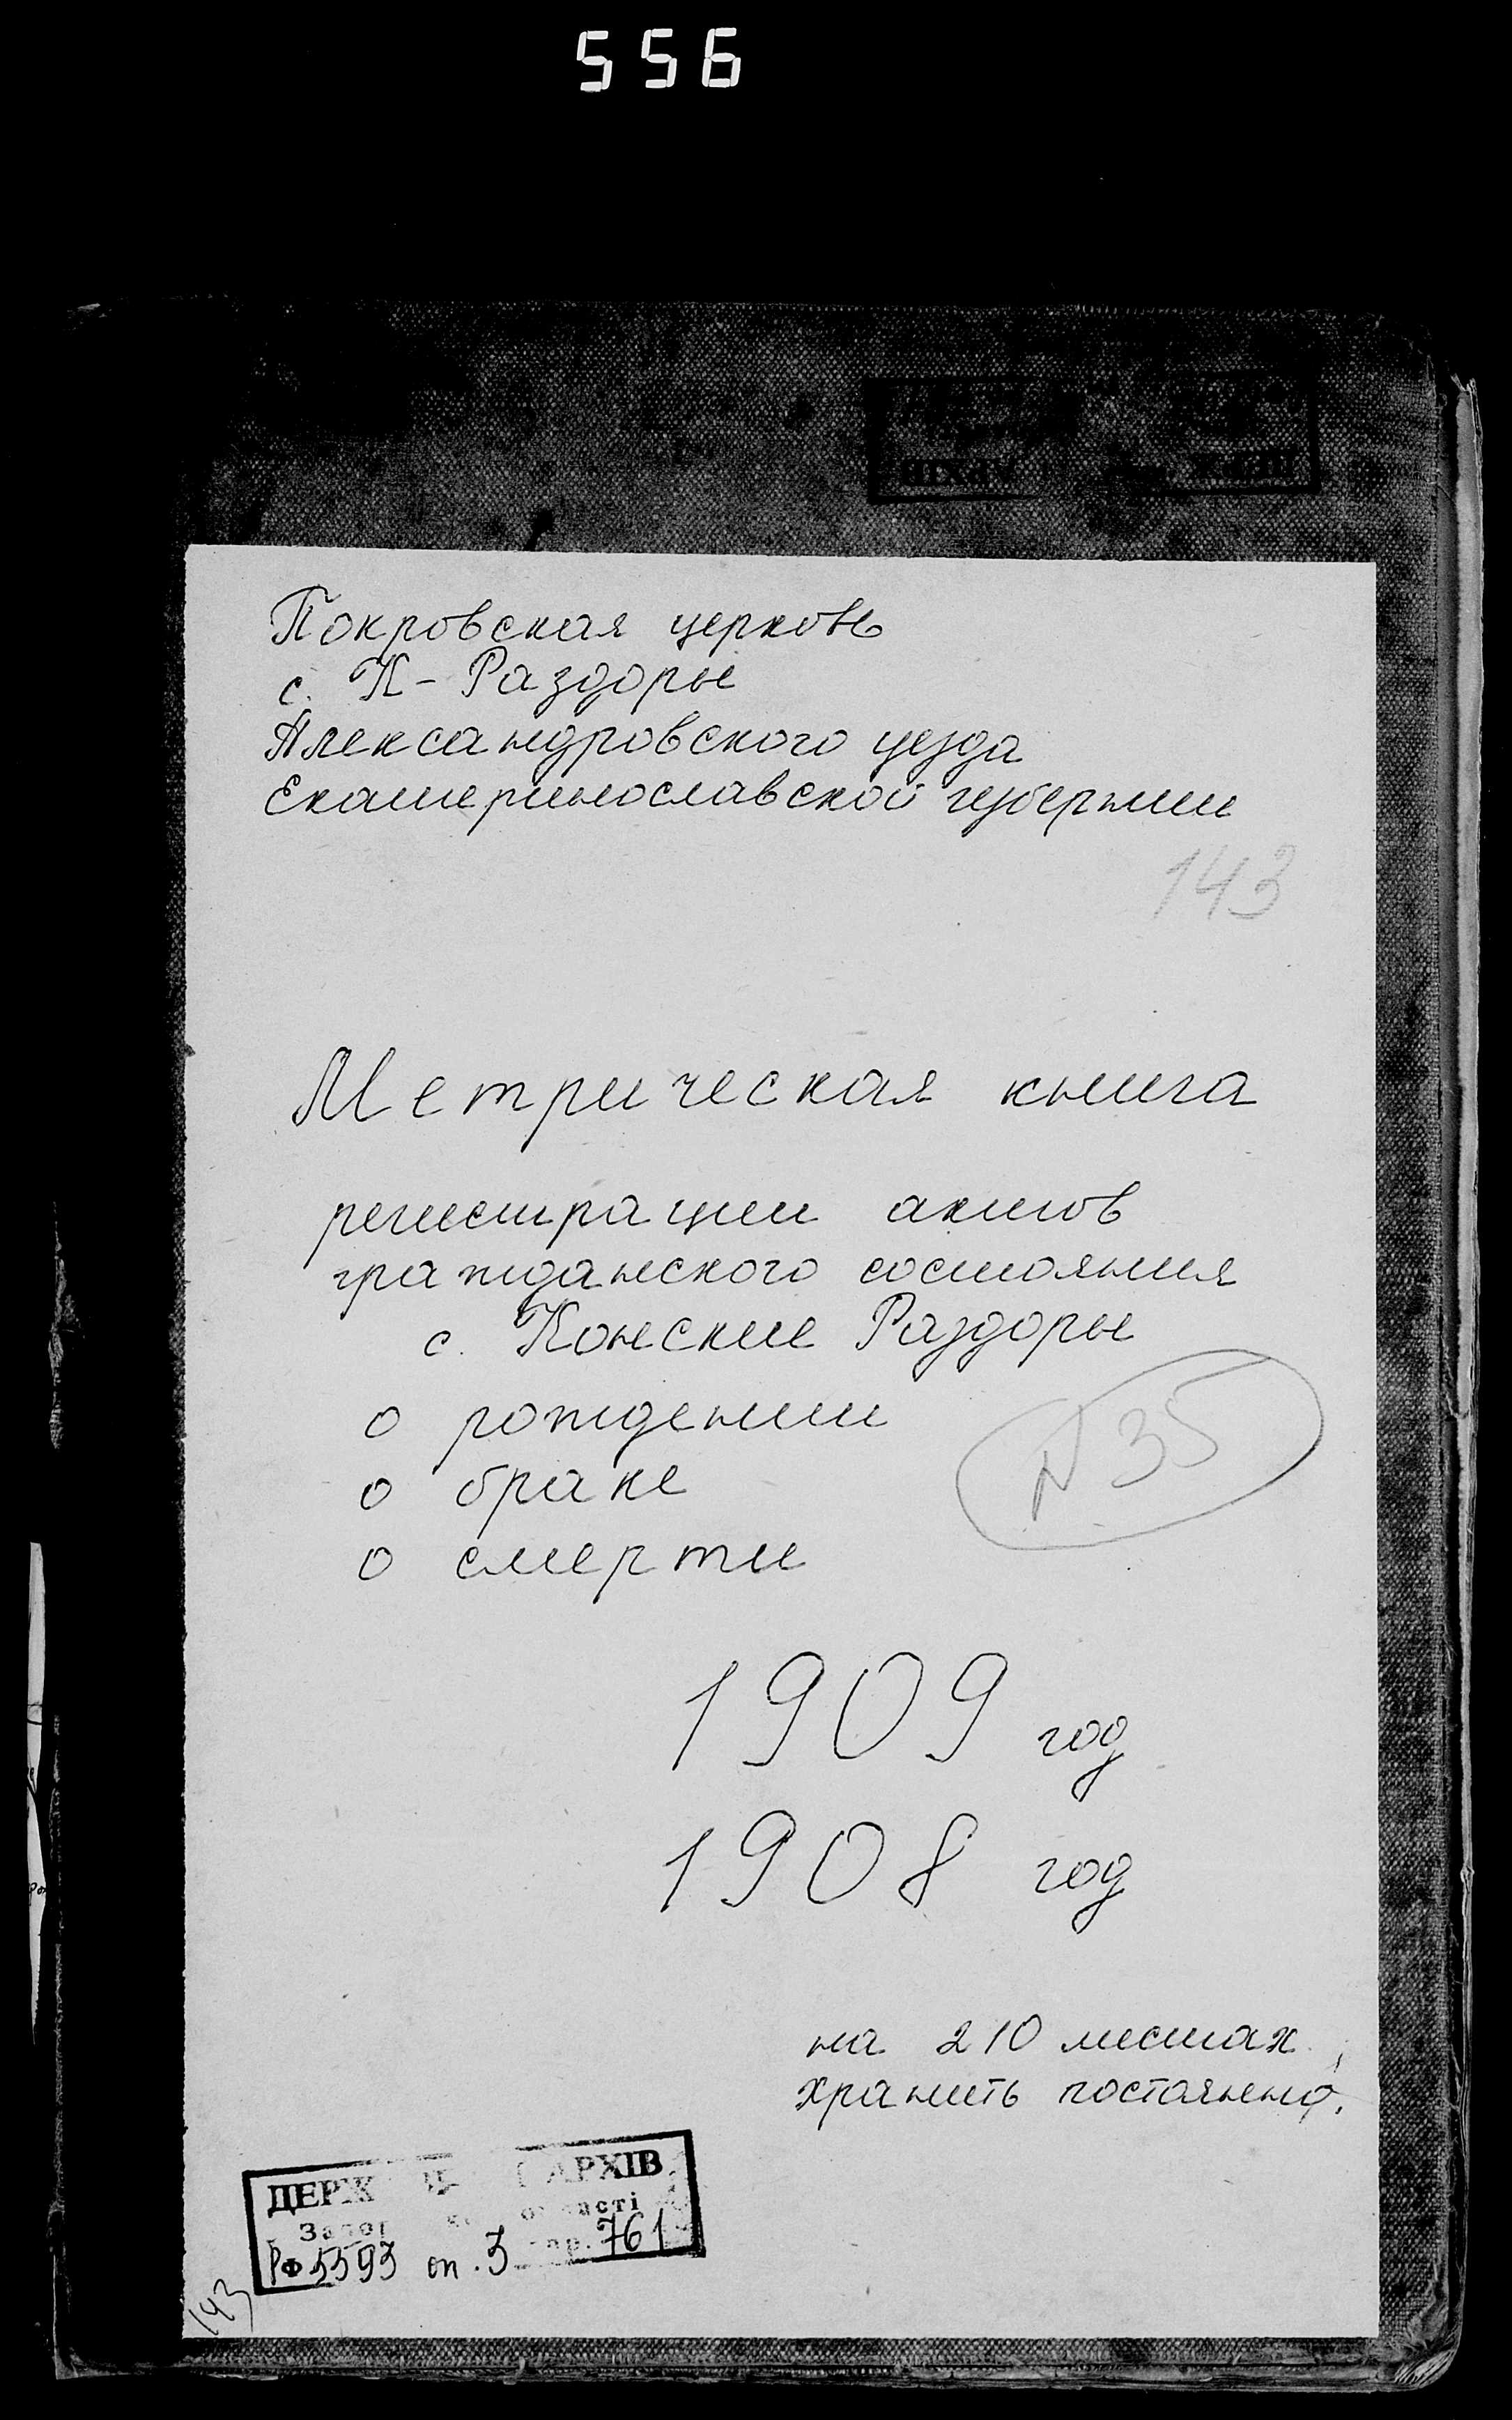 556
Покровская церковь
с. К-Раздоры
Александровского уезда
Екатеринославской губернии
143
Метрическая книга
регистрации актов
гражданского состояния
с. Конские Раздоры
о рождении
о браке
о смерти
N 35
1909 год
1908 год
на 210 листах
хранить постоянно.
ДЕРЖ АРХІВ
Запор області
РФ 5593 оп. 3 спр. 761
143